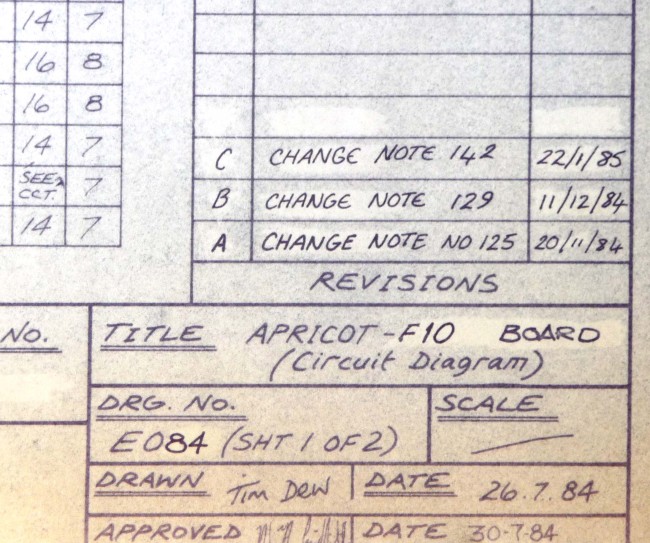 14 7
16 8
16 8
14 7
SEE CCT. 7
14 7
C CHANGE NOTE 142 22/1/85
B CHANGE NOTE 129 11/12/84
A CHANGE NOTE NO 125 20/11/84
REVISIONS
NO.
TITLE APRICOT-F10 BOARD
(Circuit Diagram)
DRG. NO. SCALE
E084 (SHT 1 OF 2)
DRAWN Tim Dew DATE 26.7.84
APPROVED DATE 30-7-84